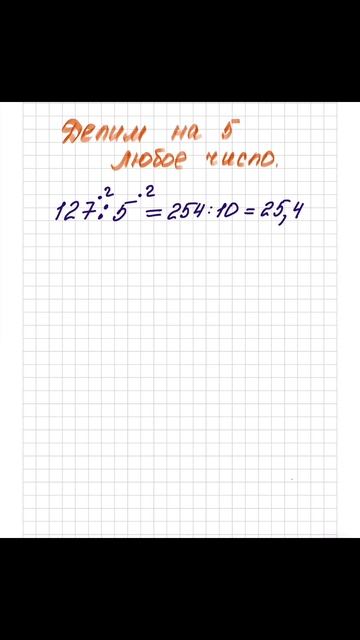 Делим на 5
любое число.
127·2 : 5·2 = 254:10 = 25,4